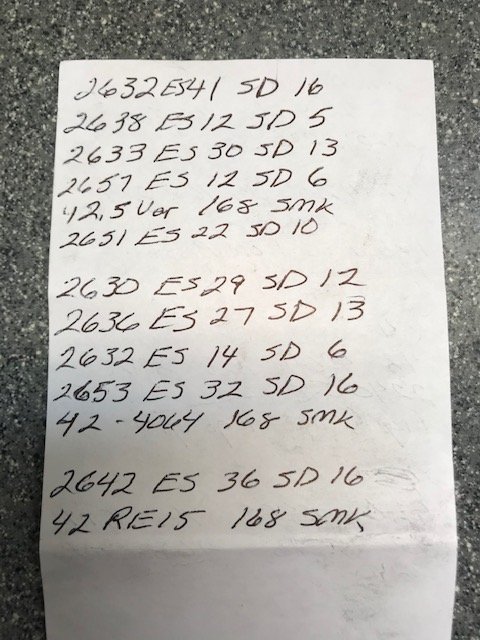 2632 ES 41 SD 16
2638 ES 12 SD 5
2633 ES 30 SD 13
2657 ES 12 SD 6
42.5 Var 168 SMK
2651 ES 22 SD 10
2630 ES 29 SD 12
2636 ES 27 SD 13
2632 ES 14 SD 6
2653 ES 32 SD 16
42 - 4064 168 SMK
2642 ES 36 SD 16
42 RE15 168 SMK